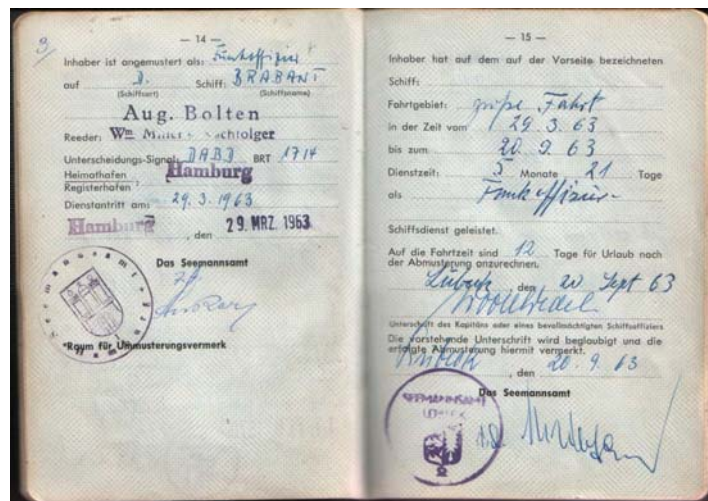 3
— 14 —
Inhaber ist angemustert als: Funkoffizier
auf D. Schiff: BRABANT
(Schiffsart) (Schiffsname)
Aug. Bolten
Reeder: Wm Miller's Nachfolger
Unterscheidungs-Signal: DABD BRT 1714
Heimathafen Hamburg
Registerhafen
Dienstantritt am: 29. 3. 1963
Hamburg, den 29. MRZ. 1963
Das Seemannsamt
*Raum für Ummusterungsvermerk
— 15 —
Inhaber hat auf dem auf der Vorseite bezeichneten
Schiff:
Fahrtgebiet: große Fahrt
in der Zeit vom 29. 3. 63
bis zum 20. 9. 63
Dienstzeit: 5 Monate 21 Tage
als Funkoffizier
Schiffsdienst geleistet.
Auf die Fahrtzeit sind 12 Tage für Urlaub nach
der Abmusterung anzurechnen.
Lübeck, den 20 Sept 63
Unterschrift des Kapitäns oder eines bevollmächtigten Schiffsoffiziers
Die vorstehende Unterschrift wird beglaubigt und die
erfolgte Abmusterung hiermit vermerkt.
Lübeck, den 20. 9. 63
Das Seemannsamt
SEEMANNSAMT
LÜBECK